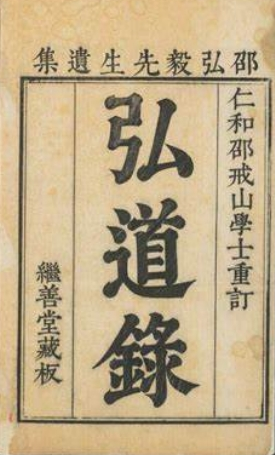 邵弘毅先生遺集
仁和邵戒山學士重訂
弘道錄
繼善堂藏板